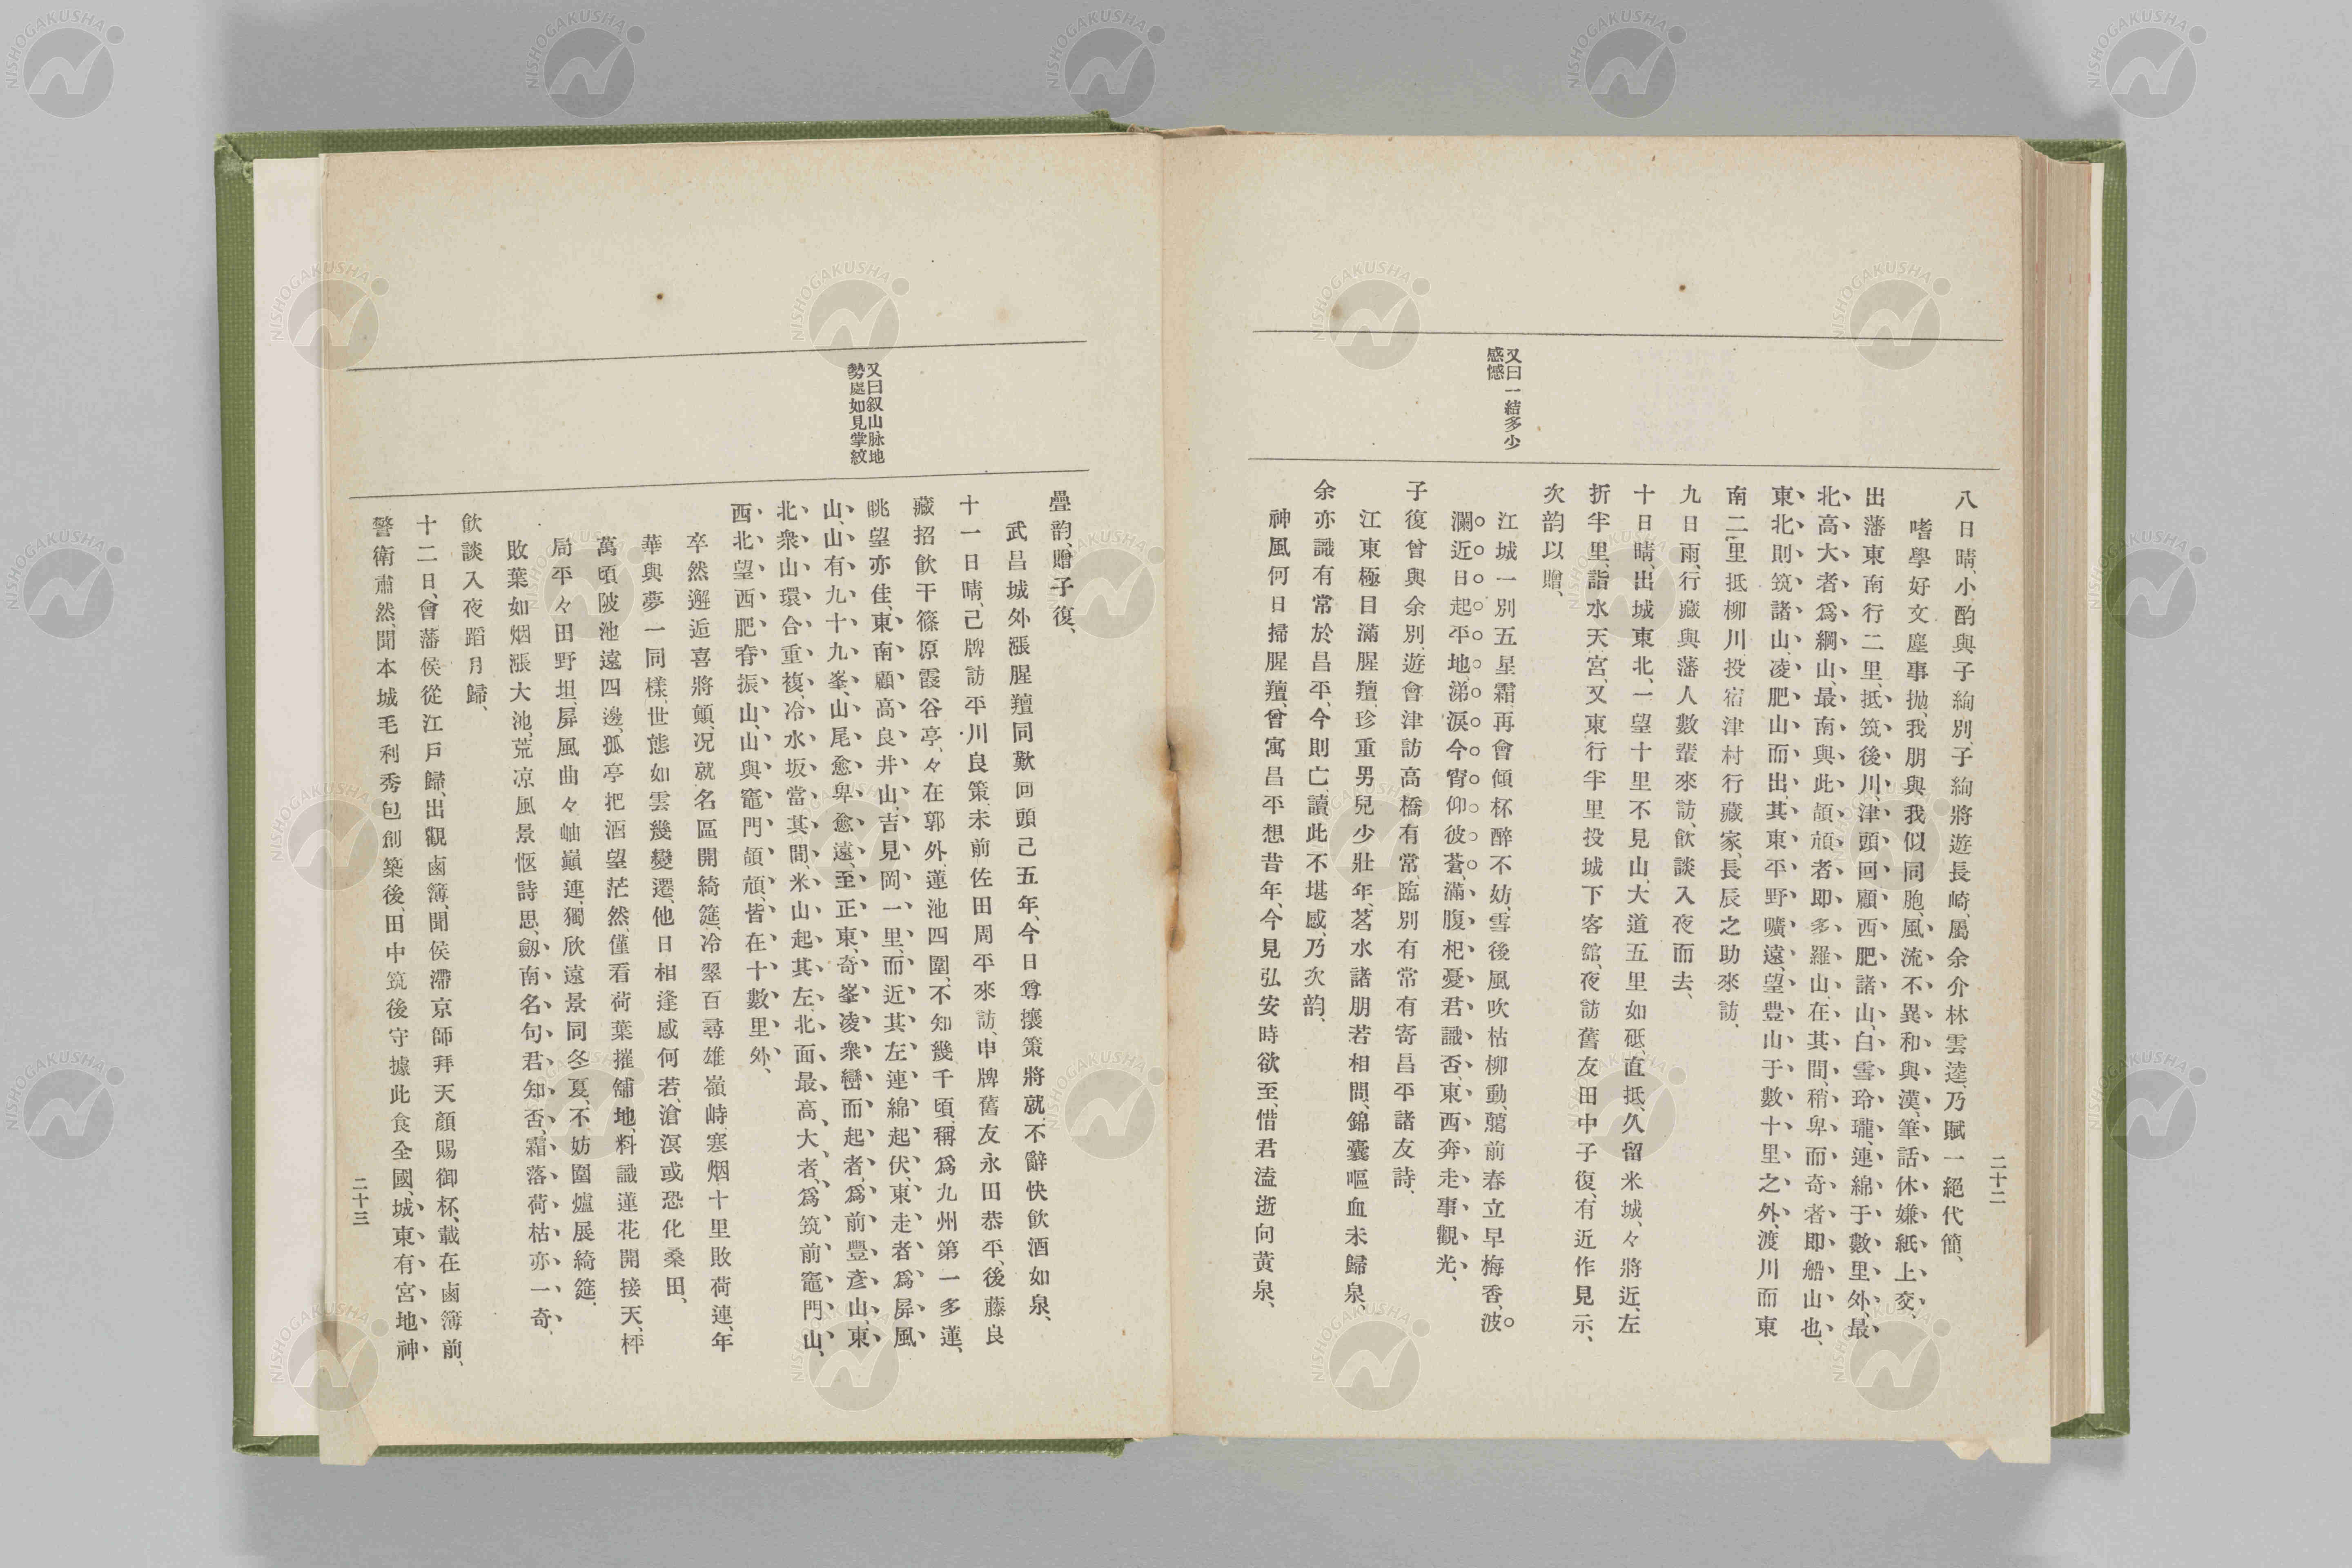 二十二
八日晴、小酌與子絢別、子絢將遊長崎、屬余介林雲逵、乃賦一絕代簡、
嗜學好文塵事拋、我朋與我似同胞、風流不異和與漢、筆話休嫌紙上交、
出藩東南行二里、抵筑後川、津頭回顧西肥諸山、白雪玲瓏、連綿于數里外、最
北高大者爲綱山、最南與此頡頏者即多羅山、在其間、稍卑而奇者即船山也、
東北則筑諸山、凌肥山而出、其東平野曠遠、望豐山于數十里之外、渡川而東
南二里抵柳川、投宿津村行藏家、長辰之助來訪、
九日雨、行藏與藩人數輩來訪、飲談入夜而去、
十日晴、出城東北、一望十里不見山、大道五里如砥、直抵久留米城、々將近、左
折半里、詣水天宮、又東行半里投城下客舘、夜訪舊友田中子復、有近作見示、
次韵以贈、
又曰一結多少
感慨
江城一別五星霜、再會傾杯醉不妨、雪後風吹枯柳動、臈前春立早梅香、波
瀾近日起平地、涕淚今宵仰彼蒼、滿腹杞憂君識否、東西奔走事觀光、
子復曾與余別、遊會津訪高橋有常、臨別有常有寄昌平諸友詩、
江東極目滿腥羶、珍重男兒少壯年、茗水諸朋若相問、錦囊嘔血未歸泉、
余亦識有常於昌平、今則亡、讀此不堪感、乃次韵、
神風何日掃腥羶、曾寓昌平想昔年、今見弘安時欲至、惜君溘逝向黃泉、
疊韵、贈子復、
武昌城外漲腥羶、同歎回頭已五年、今日尊攘策將就、不辭快飲酒如泉、
十一日晴、己牌訪平川良策、未前佐田周平來訪、申牌舊友永田恭平、後藤良
藏招飲于篠原霞谷亭、々在郭外、蓮池四圍、不知幾千頃、稱爲九州第一多蓮、
又曰叙山脉地
勢處如見掌紋
眺望亦佳、東南顧高良井山、吉見岡一里、而近其左連綿起伏、東走者爲屏風
山、山有九十九峯、山尾愈卑愈遠、至正東、奇峯凌衆巒而起者、爲前豐彥山、東
北衆山環合重複、冷水坂當其間、米山起其左、北面最高大者、爲筑前竈門山、
西北望西肥脊振山、山與竈門頡頏、皆在十數里外、
卒然邂逅喜將顛、况就名區開綺筵、冷翠百尋雄嶺峙、寒烟十里敗荷連、年
華與夢一同樣、世態如雲幾變遷、他日相逢感何若、滄溟或恐化桑田、
萬頃陂池遠四邊、孤亭把酒望茫然、僅看荷葉摧舖地、料識蓮花開接天、枰
局平々田野坦、屏風曲々岫巓連、獨欣遠景同冬夏、不妨圍爐展綺筵、
敗葉如烟漲大池、荒凉風景愜詩思、劔南名句君知否、霜落荷枯亦一奇、
飲談入夜蹈月歸、
十二日、會藩侯從江戶歸、出觀鹵簿、聞侯滯京師拜天顏賜御杯、載在鹵簿前、
警衛肅然、聞本城毛利秀包創築後、田中筑後守據此食全國、城東有宮地神
二十三